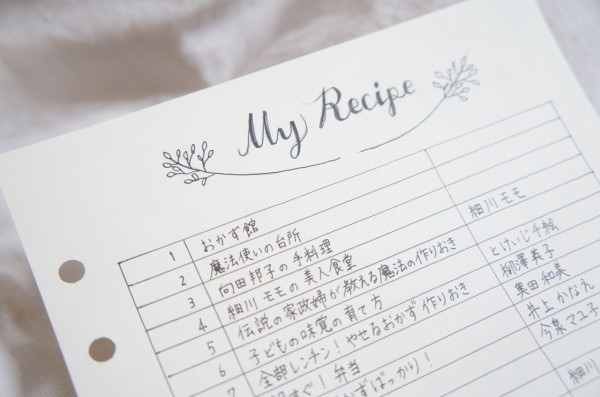 My Recipe
1 おかず館
2 魔法使いの台所
3 向田邦子の手料理
4 細川モモの美人食堂 細川モモ
5 伝説の家政婦が教える魔法の作りおき
6 子どもの味覚の育て方 とけいじ千絵
7 全部レンチン!やせるおかず 作りおき 柳澤英子
すぐ!弁当 奥田和美
ばっかり! 井上かなえ
今泉マユ子
細川